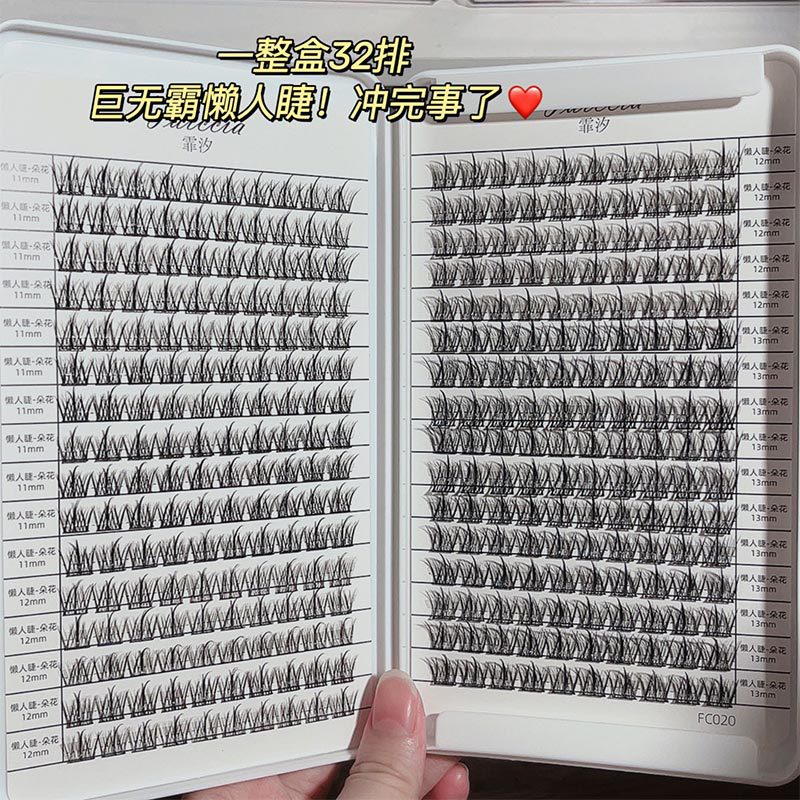 一整盒32排
巨无霸懒人睫！冲完事了❤️
霏汐
懒人睫-朵花
11mm
懒人睫-朵花
11mm
懒人睫-朵花
11mm
懒人睫-朵花
11mm
懒人睫-朵花
11mm
懒人睫-朵花
11mm
懒人睫-朵花
11mm
懒人睫-朵花
11mm
懒人睫-朵花
11mm
懒人睫-朵花
11mm
懒人睫-朵花
11mm
懒人睫-朵花
12mm
懒人睫-朵花
12mm
懒人睫-朵花
12mm
懒人睫-朵花
12mm
懒人睫-朵花
12mm
霏汐
懒人睫-朵花
12mm
懒人睫-朵花
12mm
懒人睫-朵花
12mm
懒人睫-朵花
12mm
懒人睫-朵花
12mm
懒人睫-朵花
13mm
懒人睫-朵花
13mm
懒人睫-朵花
13mm
懒人睫-朵花
13mm
懒人睫-朵花
13mm
懒人睫-朵花
13mm
懒人睫-朵花
13mm
懒人睫-朵花
13mm
懒人睫-朵花
13mm
懒人睫-朵花
13mm
懒人睫-朵花
13mm
FC020